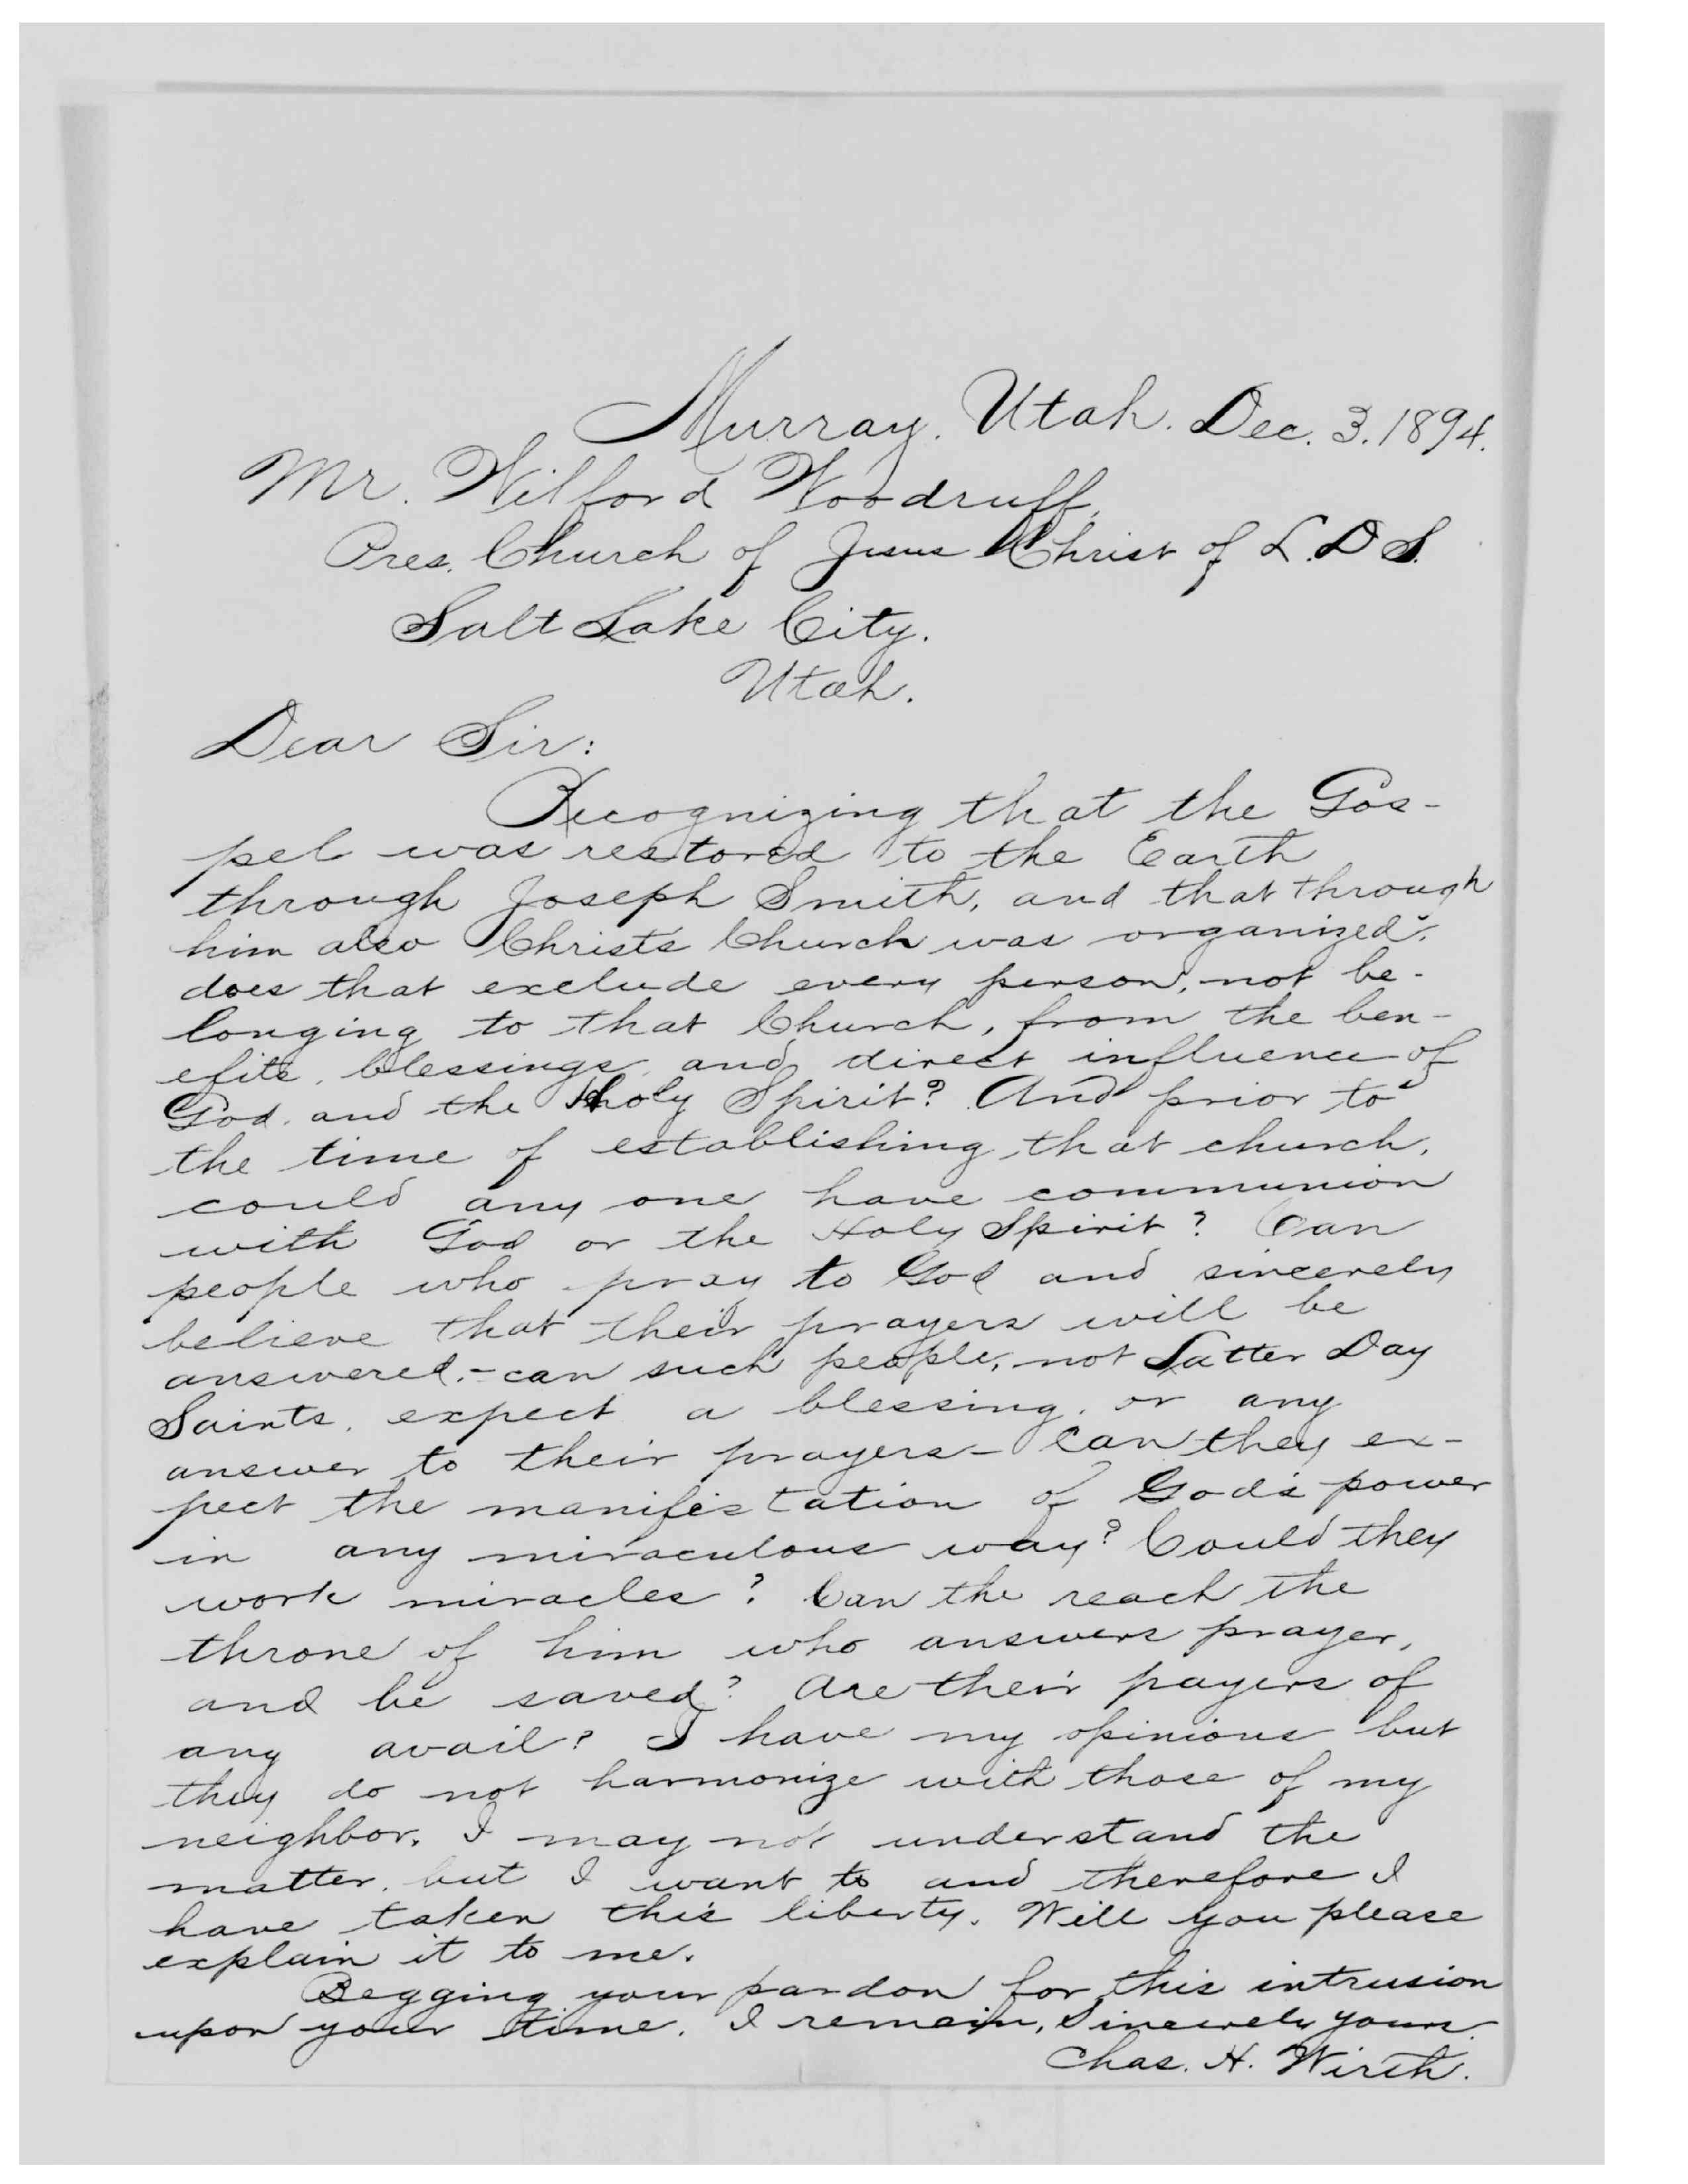 Murray, Utah. Dec. 3. 1894.
Mr. Wilford Woodruff,
Pres. Church of Jesus Christ of L.D.S.
Salt Lake City.
Utah.
Dear Sir:
Recognizing that the Gos-
pel was restored to the Earth
through Joseph Smith, and that through
him also Christs Church was organized,
does that exclude every person, not be-
longing to that Church, from the ben-
efits, blessings, and direct influence of
God, and the Holy Spirit? And prior to
the time of establishing that church,
could any one have communion
with God or the Holy Spirit? Can
people who pray to God and sincerely
believe that their prayers will be
answered,- can such people, not Latter Day
Saints, expect a blessing, or any
answer to their prayers- Can they ex-
pect the manifestation of God's power
in any miraculous way? Could they
work miracles? Can the reach the
throne of him who answers prayer,
and be saved? Are their payers of
any avail? I have my opinions but
they do not harmonize with those of my
neighbor. I may not understand the
matter, but I want to and therefore I
have taken this liberty. Will you please
explain it to me.
Begging your pardon for this intrusion
upon your time. I remain, Sincerely yours.
Chas. H. Wirth.